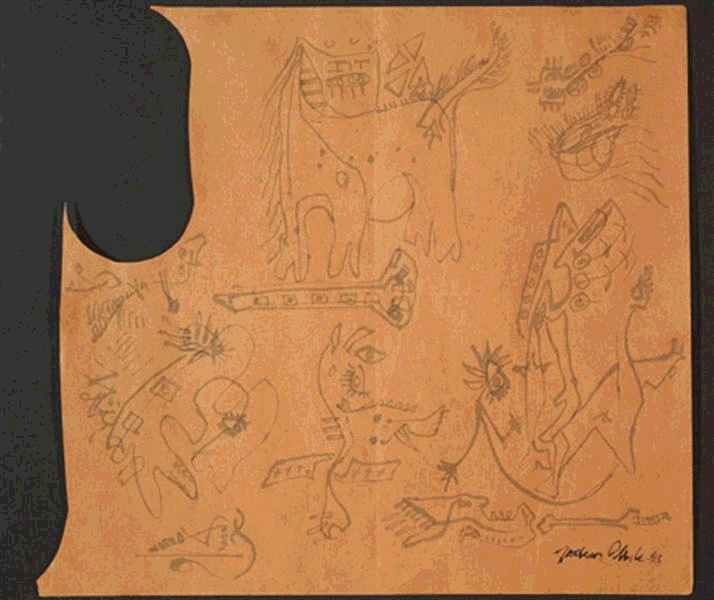 Jackson Pollock 43